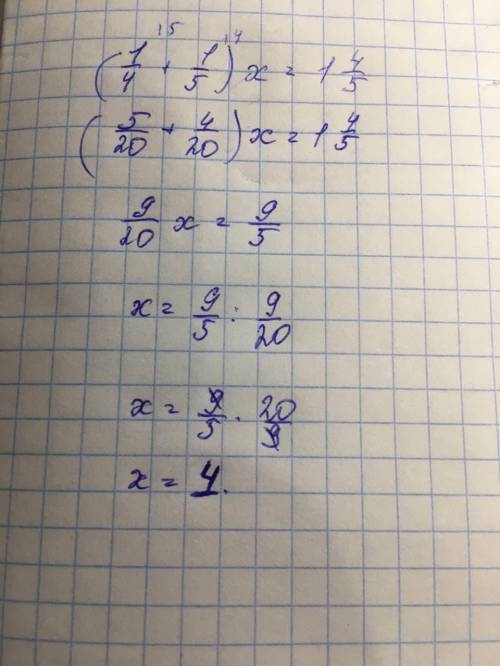 (1/4 ⁽⁵ + 1/5 ⁽⁴)x = 1 4/5
(5/20 + 4/20)x = 1 4/5
9/20 x = 9/5
x = 9/5 : 9/20
x = 9/5 · 20/9
x = 4.